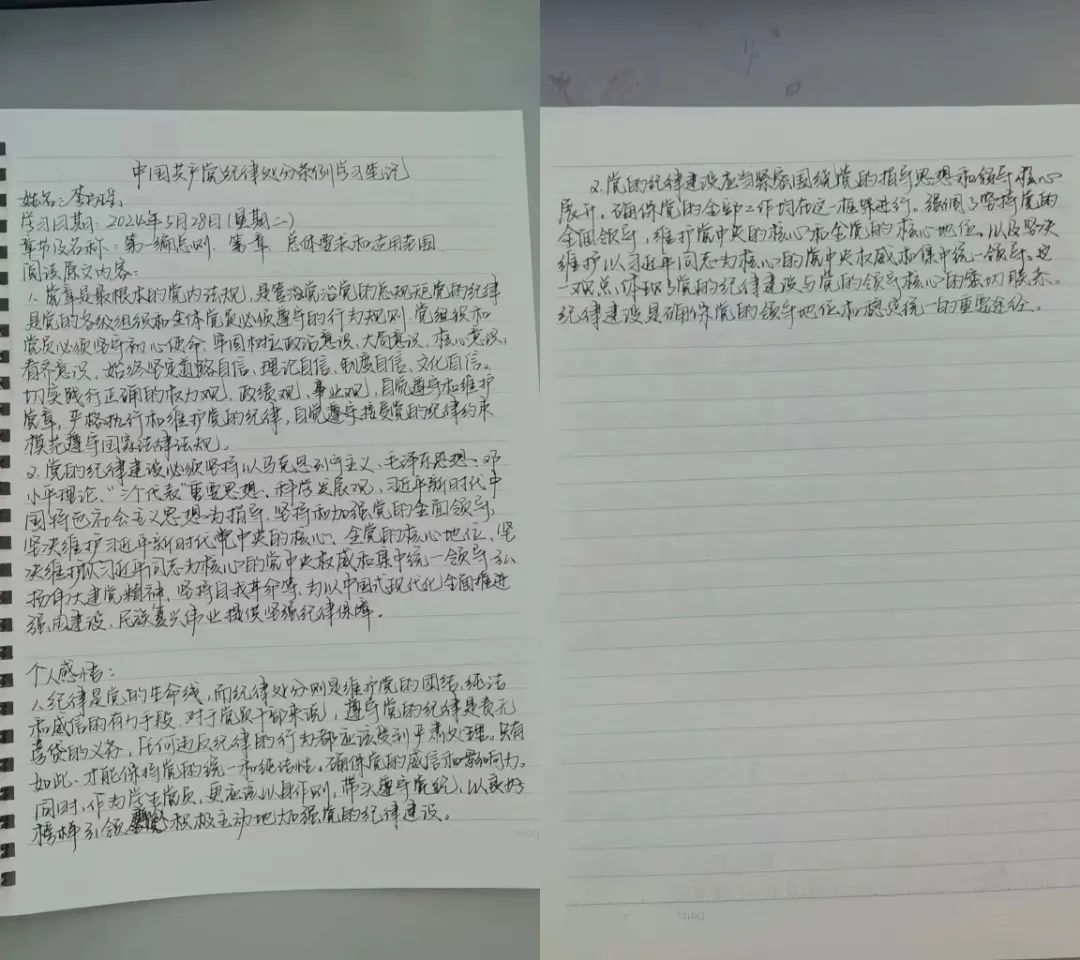 中国共产党纪律处分条例学习笔记
姓名:李
学习日期:2024年5月28日(星期二)
章节及名称:第一编总则 第一章 总体要求和适用范围
阅读原文内容:
1. 党章是最根本的党内法规,是管党治党的总规矩党的纪律
是党的各级组织和全体党员必须遵守的行为规则.党组织和
党员必须坚守初心使命.牢固树立政治意识、大局意识、核心意识、
看齐意识,始终坚定道路自信、理论自信、制度自信、文化自信。
切实践行正确的权力观、政绩观、事业观,自觉遵守和维护
党章,严格执行和维护党的纪律,自觉遵守接受党的纪律约束
模范遵守国家法律法规。
2. 党的纪律建设必须坚持以马克思列宁主义、毛泽东思想、邓
小平理论、“三个代表”重要思想、科学发展观、习近平新时代中
国特色社会主义思想为指导,坚持和加强党的全面领导,
坚决维护习近平新时代党中央的核心、全党的核心地位、坚
决维护以习近平同志为核心的党中央权威和集中统一领导,弘
扬伟大建党精神、坚持自我革命等,为以中国式现代化全面推进
强国建设、民族复兴伟业提供坚强纪律保障。
个人感悟:
1. 纪律是党的生命线,而纪律处分则是维护党的团结、纯洁
和威信的有力手段.对于党员干部来说,遵守党的纪律是责无
旁贷的义务,任何违反纪律的行为都应该受到严肃处理。只有
如此,才能保持党的统一和纯洁性。确保党的威信和影响力。
同时,作为学生党员,更应该以身作则,带头遵守党纪,以良好
榜样引领积极主动地加强党的纪律建设。
2. 党的纪律建设应当紧密围绕党的指导思想和领导核心
展开,确保党的全部工作均在这一框架进行。强调了坚持党的
全面领导,维护党中央的核心和全党的核心地位。以及坚决
维护以习近平同志为核心的党中央权威和集中统一领导。这
一观点,体现了党的纪律建设与党的领导核心的密切联系。
纪律建设是确保党的领导地位和稳定统一的重要途径。